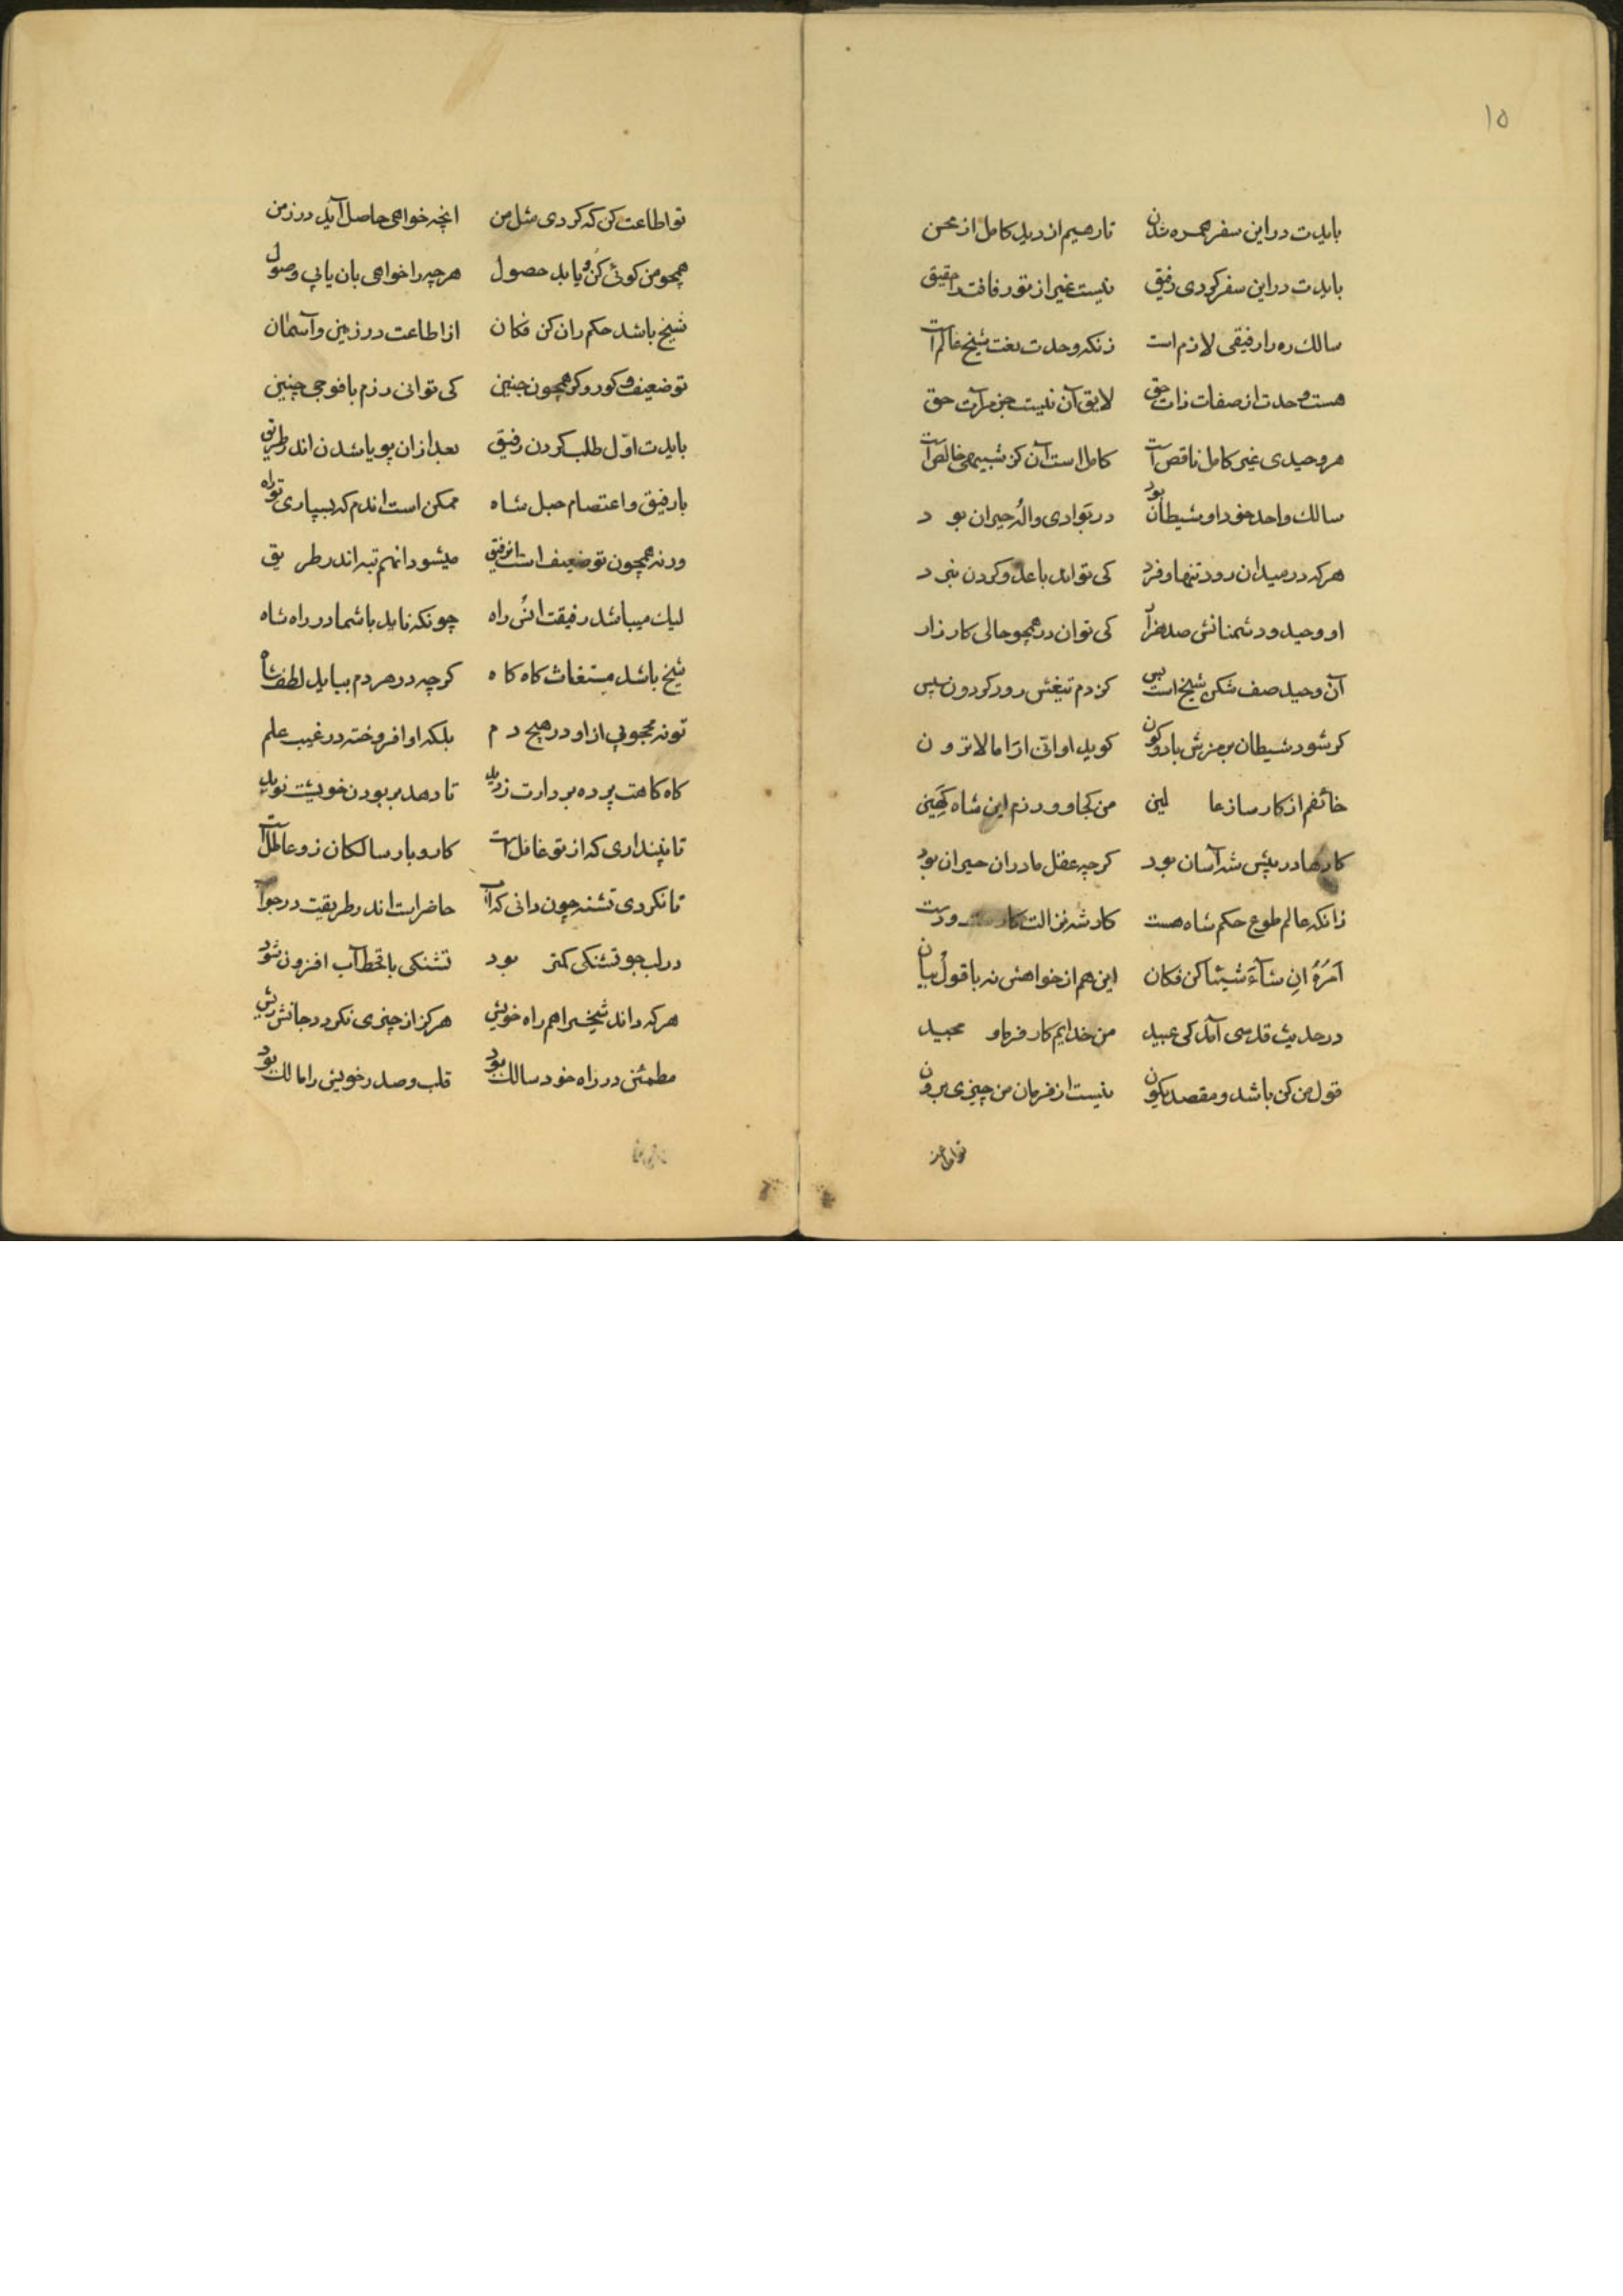 ۱۵
بایدت در این سفر همره شدن تا رهیم از دید کامل از محن
بایدت در این سفر کردی رفیق نیست غیر از تو رفاقت را حقیق
سالك ره را رفیقی لازم است زنکه وحدت نعت شیخ عالم است
هست وحدت از صفات ذات حق لایق آن نیست جز مرآت حق
هر وحیدی غیر کامل ناقص است کامل است آن کز شبیهی خالص است
سالك واحد خود او شیطان بود در بوادی واله حیران بود
هرکه در میدان رود تنها و فرد کی تواند با عدو کردن نبرد
او وحید و دشمنانش صد هزار کی توان در همچو حالی کارزار
آن وحید صف شکن شیخ است بس کز دم تیغش رود کردون سپس
کر شود شیطان برمزش بادو کون کوید او انّی ارٰا ما لا ترون
خائفم از کارساز عالمین من کجا و رزم این شاه کهین
کارها در پیش شه آسان بود کرچه عقل ما در ان حیران بود
زانکه عالم طوع حکم شاه هست کار شه نز الت
اَمرُهُ اِن شآءَ شیئا کن فکان این هم از خواهش نه با قول بیان
در حدیث قدسی آمد کی عبید من خدایم کار فرما و مجید
قول من کن باشد و مقصد یکون نیست از فرمان من چیزی برون
تو اطاعت
تو اطاعت کن که کردی مثل من انچه خواهی حاصل آید در زمن
همچو من کوئی کن و یابد حصول هرچه را خواهی بان یابی وصول
شیخ باشد حکم ران کن فکان از اطاعت در زمین و آسمان
تو ضعیف و کور و کر همچون جنین کی توانی رزم با فوجی چنین
بایدت اوّل طلب کردن رفیق بعد از ان پویا شدن اندر طریق
با رفیق و اعتصام حبل شاه ممکن است اندم که بسپاری تو راه
ورنه همچون تو ضعیف است از رفیق میشود انهم تبه اندر طریق
لیك میباشد رفیقت انس راه چونکه ناید با شما در راه شاه
شیخ باشد مستغاث کاه کاه کرچه در هر دم بباید لطف شاه
تو نه محجوبی از او در هیچ دم بلکه او افروخته در غیب علم
کاه کاهت پرده بر دارت ز دید تا دهد بر بودن خویشت نوید
تا نپنداری که از تو غافل است کار و بار سالکان زو عاطل است
تا نکردی تشنه چون دانی که آب حاضر است اندر طریقت در جواب
در لب جو تشنکی کمتر بود تشنکی با قحط آب افزون شود
هرکه داند شیخ را همراه خویش هرکز از چیزی نکردد جانش ریش
مطمئن در راه خود سالك بود قلب و صدر خویش را مالك بود